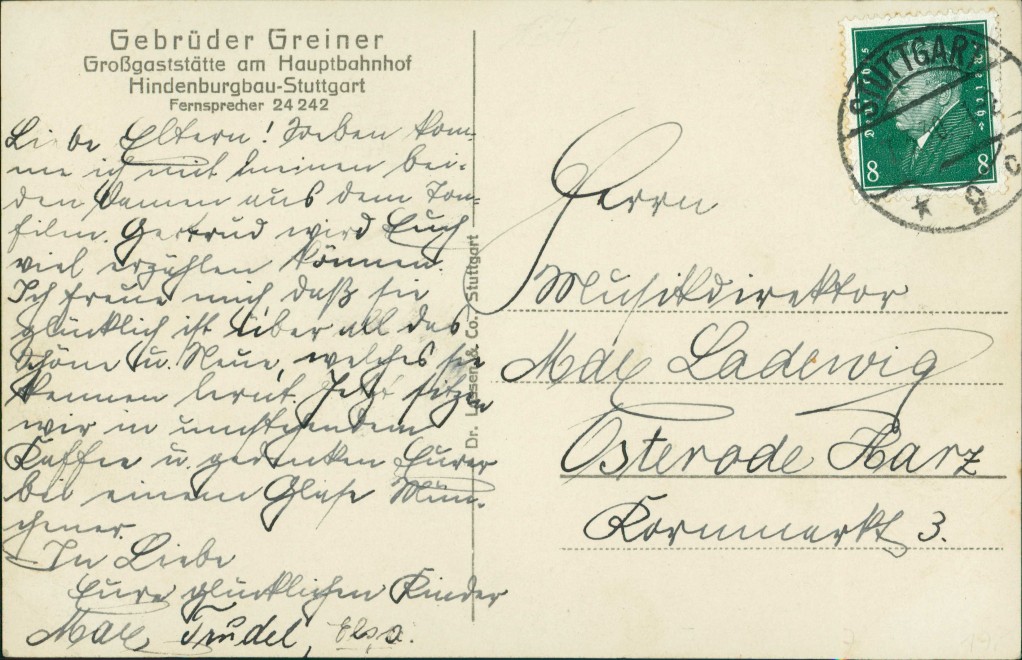 Gebrüder Greiner
Großgaststätte am Hauptbahnhof
Hindenburgbau-Stuttgart
Fernsprecher 24 242
Liebe Eltern! Soeben kom-
me ich mit meinen bei-
den Damen aus dem Ton-
film. Gertrud wird Euch
viel erzählen können.
Ich freue mich, daß sie
glücklich ist über all das
Schöne u. Neue, welches sie
kennen lernt. Jetzt sitzen
wir in umstehendem
Kaffee u. gedenken Eurer
bei einem Glase Mün-
chener.
In Liebe
Eure glücklichen Kinder
Max, Trudel,
Dr. Lassen & Co., Stuttgart
STUTTGART
9
Deutsches Reich
8 8
Herrn
Musikdirektor
Max Ladewig
Osterode Harz
Kornmarkt 3.